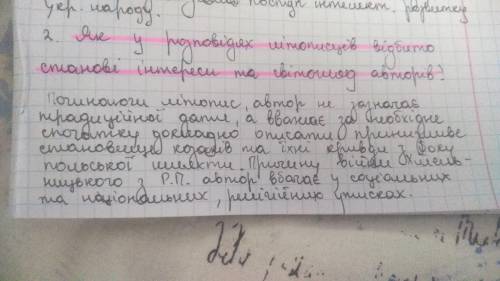 укр. народу. поступ інтелект. розвитку
2. Як у розповідях літописців відбито
станові інтереси та світогляд авторів?
Починаючи літопис, автор не зазначає
традиційної дати, а вважає за необхідне
спочатку докладно описати принизливе
становище козаків та їхні кривди з боку
польської шляхти. Причину війни Хмель-
ницького з Р.П. автор вбачає у соціальних
та національних, релігійних утисках.